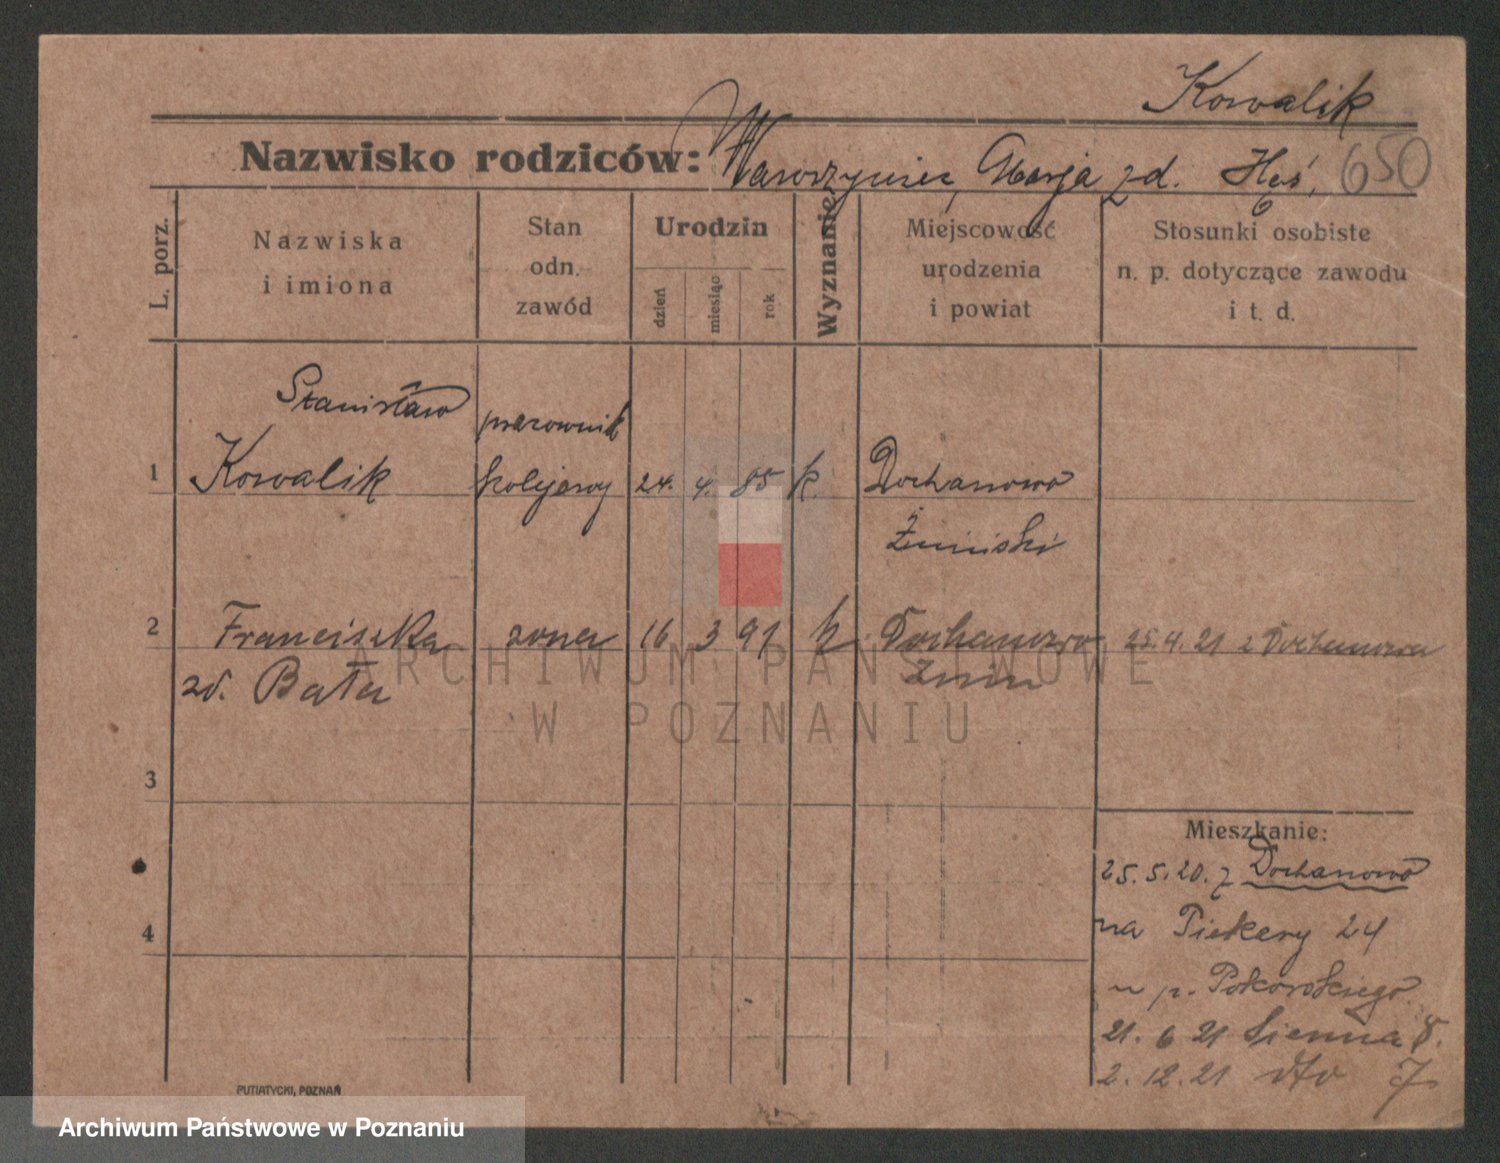 Kowalik
Nazwisko rodziców: Wawrzyniec, Marja zd. Hęś, 650
L. porz.
Nazwiska
i imiona
Stan
odn.
zawód
Urodzin
dzień
miesiąc
rok
Wyznanie
Miejscowość
urodzenia
i powiat
Stosunki osobiste
n. p. dotyczące zawodu
i t. d.
Stanisław pracownik
1 Kowalik kolejowy 24. 4. 85 k. Dochanowo
Żniński
2 Franciszka żona 16 3 91 k. Dochanowo 25.4.21 z Dochanowa
zd. Bata Żnin
ARCHIWUM PAŃSTWOWE
W POZNANIU
3
Mieszkanie:
25.5.20. z Dochanowo
4
na Piekary 24
u p. Pokorskiego.
21. 6 21 Sienna 8.
2. 12. 21 dto 7
PUTIATYCKI, POZNAŃ
Archiwum Państwowe w Poznaniu